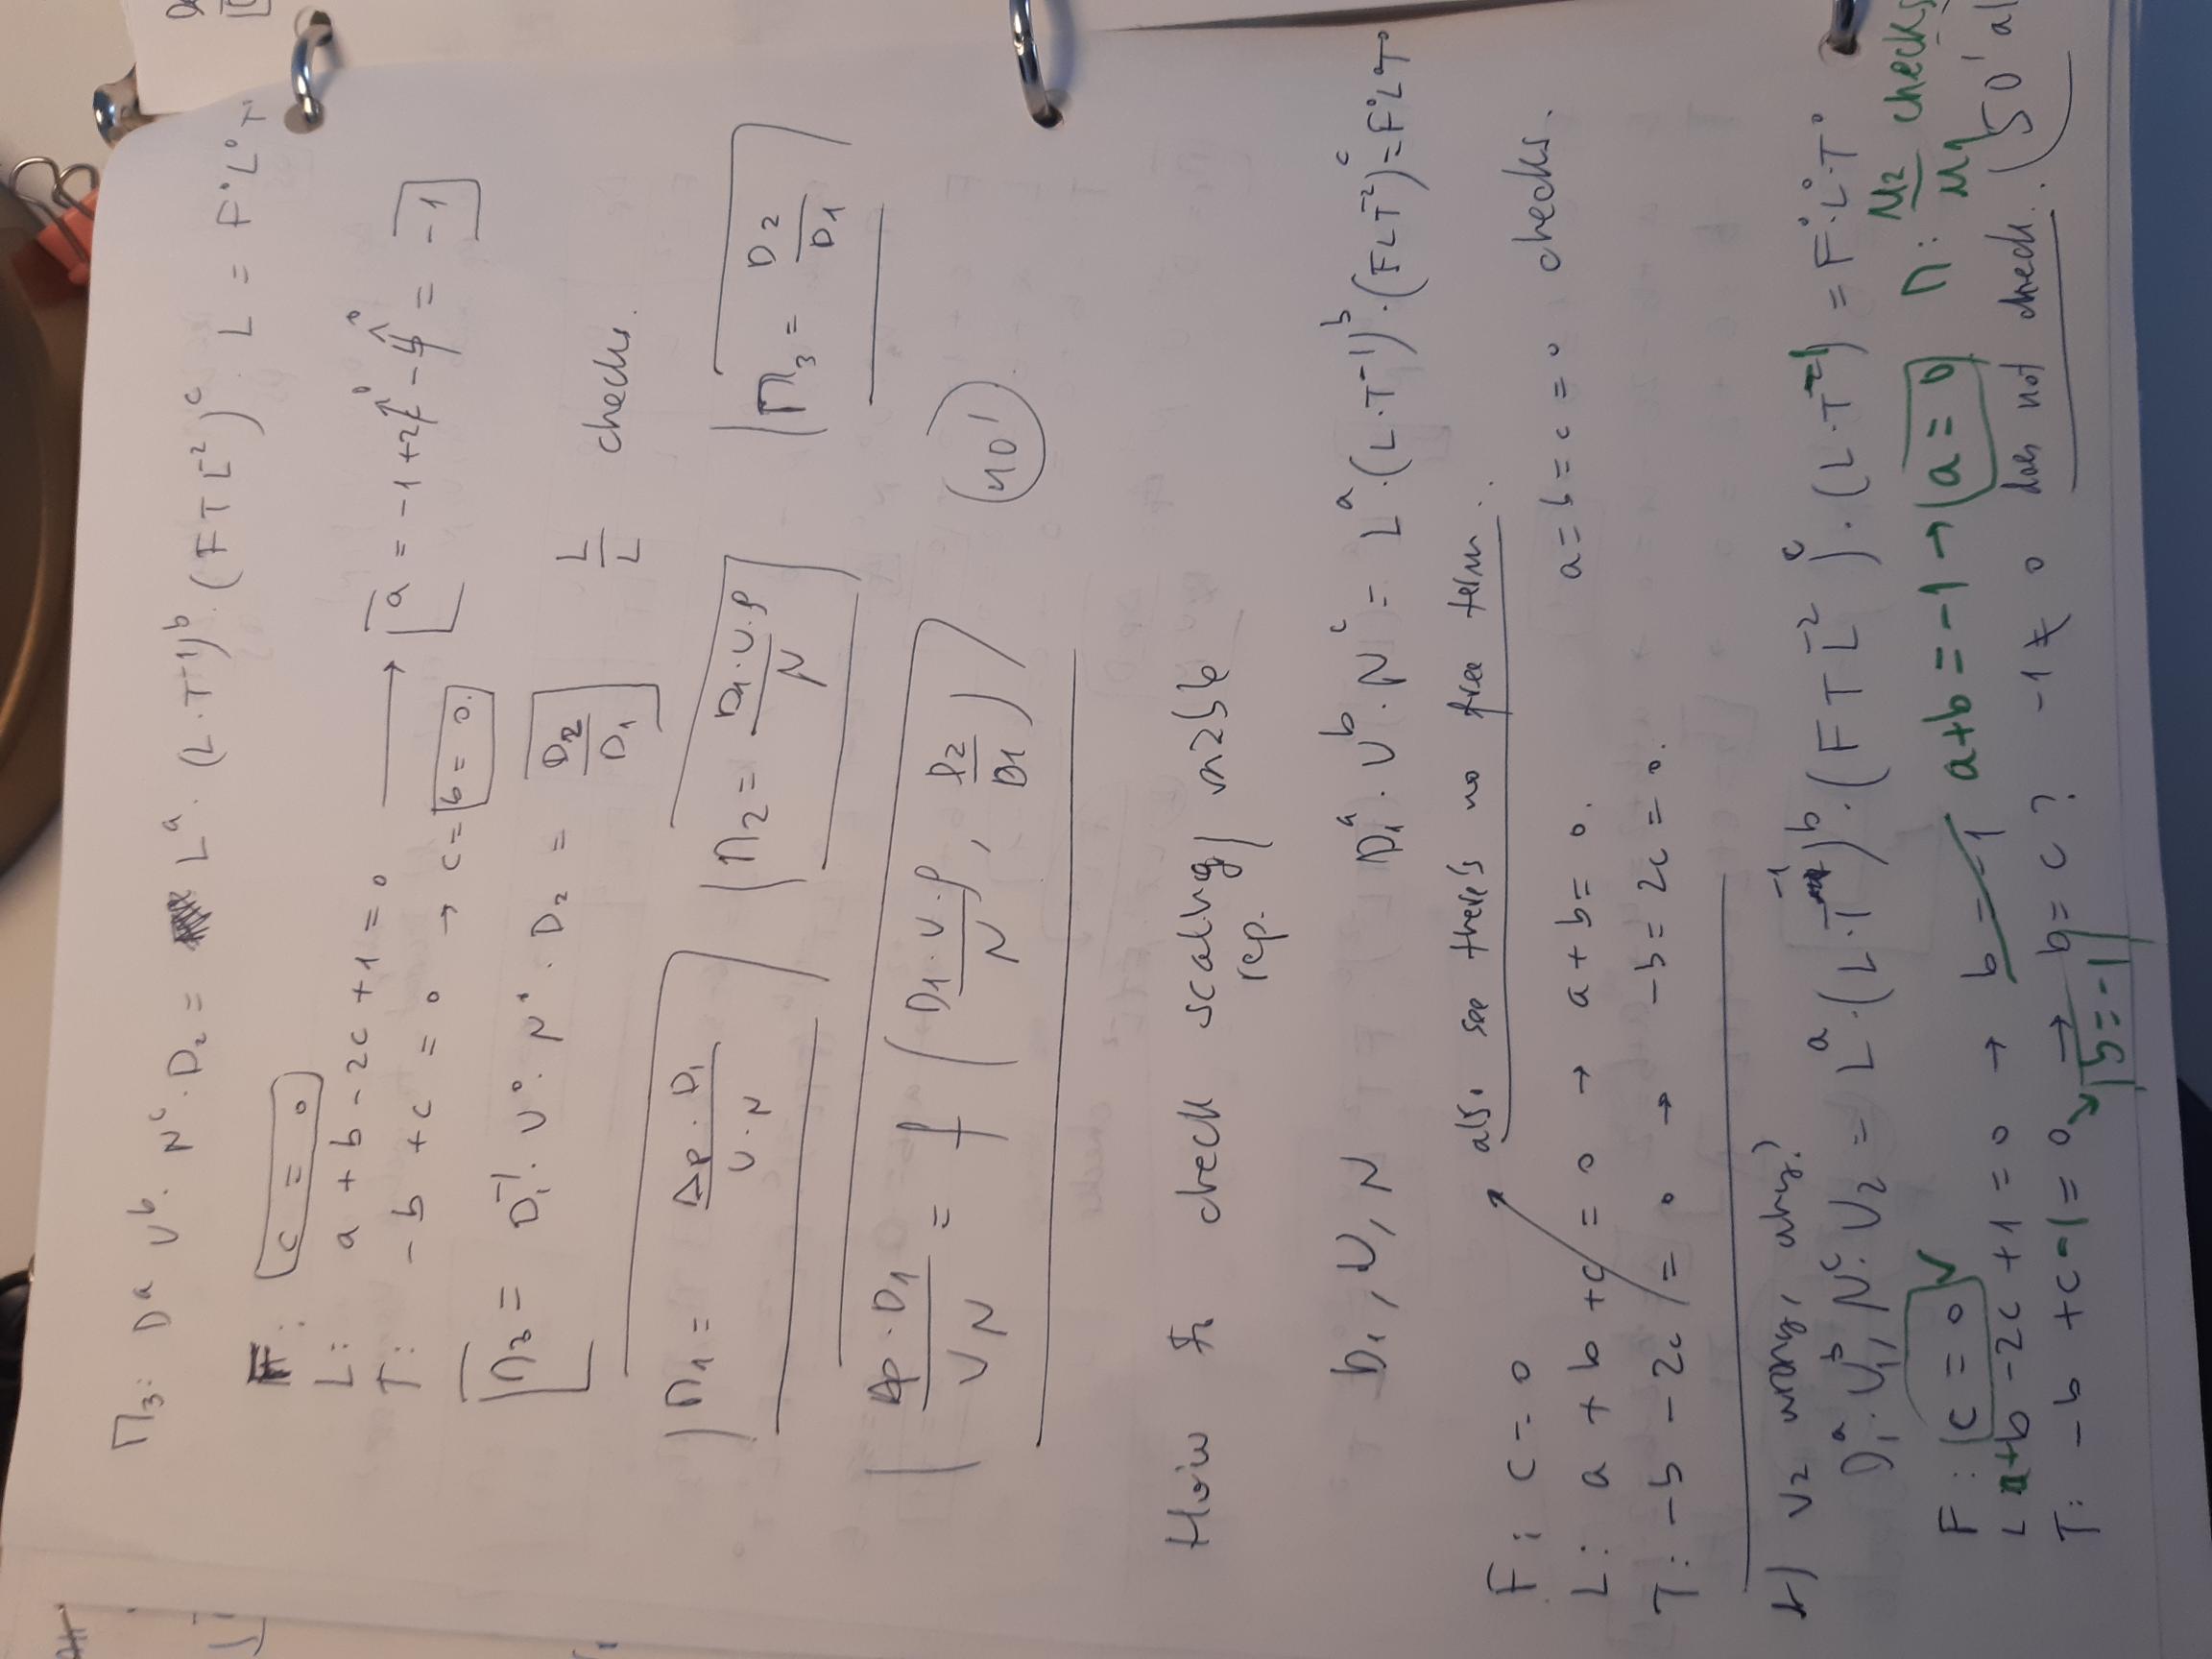 Π3: D^a V^b · N^c · D2 = L^a · (L·T^-1)^b · (F T L^-2)^c · L = F°L°T°
F: c = 0
L: a + b - 2c + 1 = 0 → a = -1 + 2c - b = -1
T: - b + c = 0 → c = b = 0.
Π3 = D1^-1 · V° · N° · D2 = D2/D1 L/L checks.
Π1 = Δp · D1 / V · N Π2 = D1 · V · ρ / N Π3 = D2/D1
Δp · D1 / V N = f ( D1 · V · ρ / N , D2/D1 ) 40'
How to check scaling/
rep.
D1, V, N D1^a · V^b · N^c = L^a · (L·T^-1)^b · (FLT^-2)^c = F°L°T°
also see there's no free term.
F: c = 0
L: a + b + c = 0 → a + b = 0. a = b = c = 0 checks.
T: -b - 2c = 0 → -b = 2c = 0.
b) V2 wrong, why?
D1^a · V1^b · N^c · V2 = L^a · (L·T^-1)^b · (F T L^-2)^c · (L·T^-1) = F°·L°·T°
F: c = 0 ✓
L a+b - 2c + 1 = 0 → b = -1 a+b = -1 → a = 0 Π: M2/M1 checks
T: - b + c -1 = 0 → b = c ? -1 ≠ 0 does not check. 50' al
b = -1